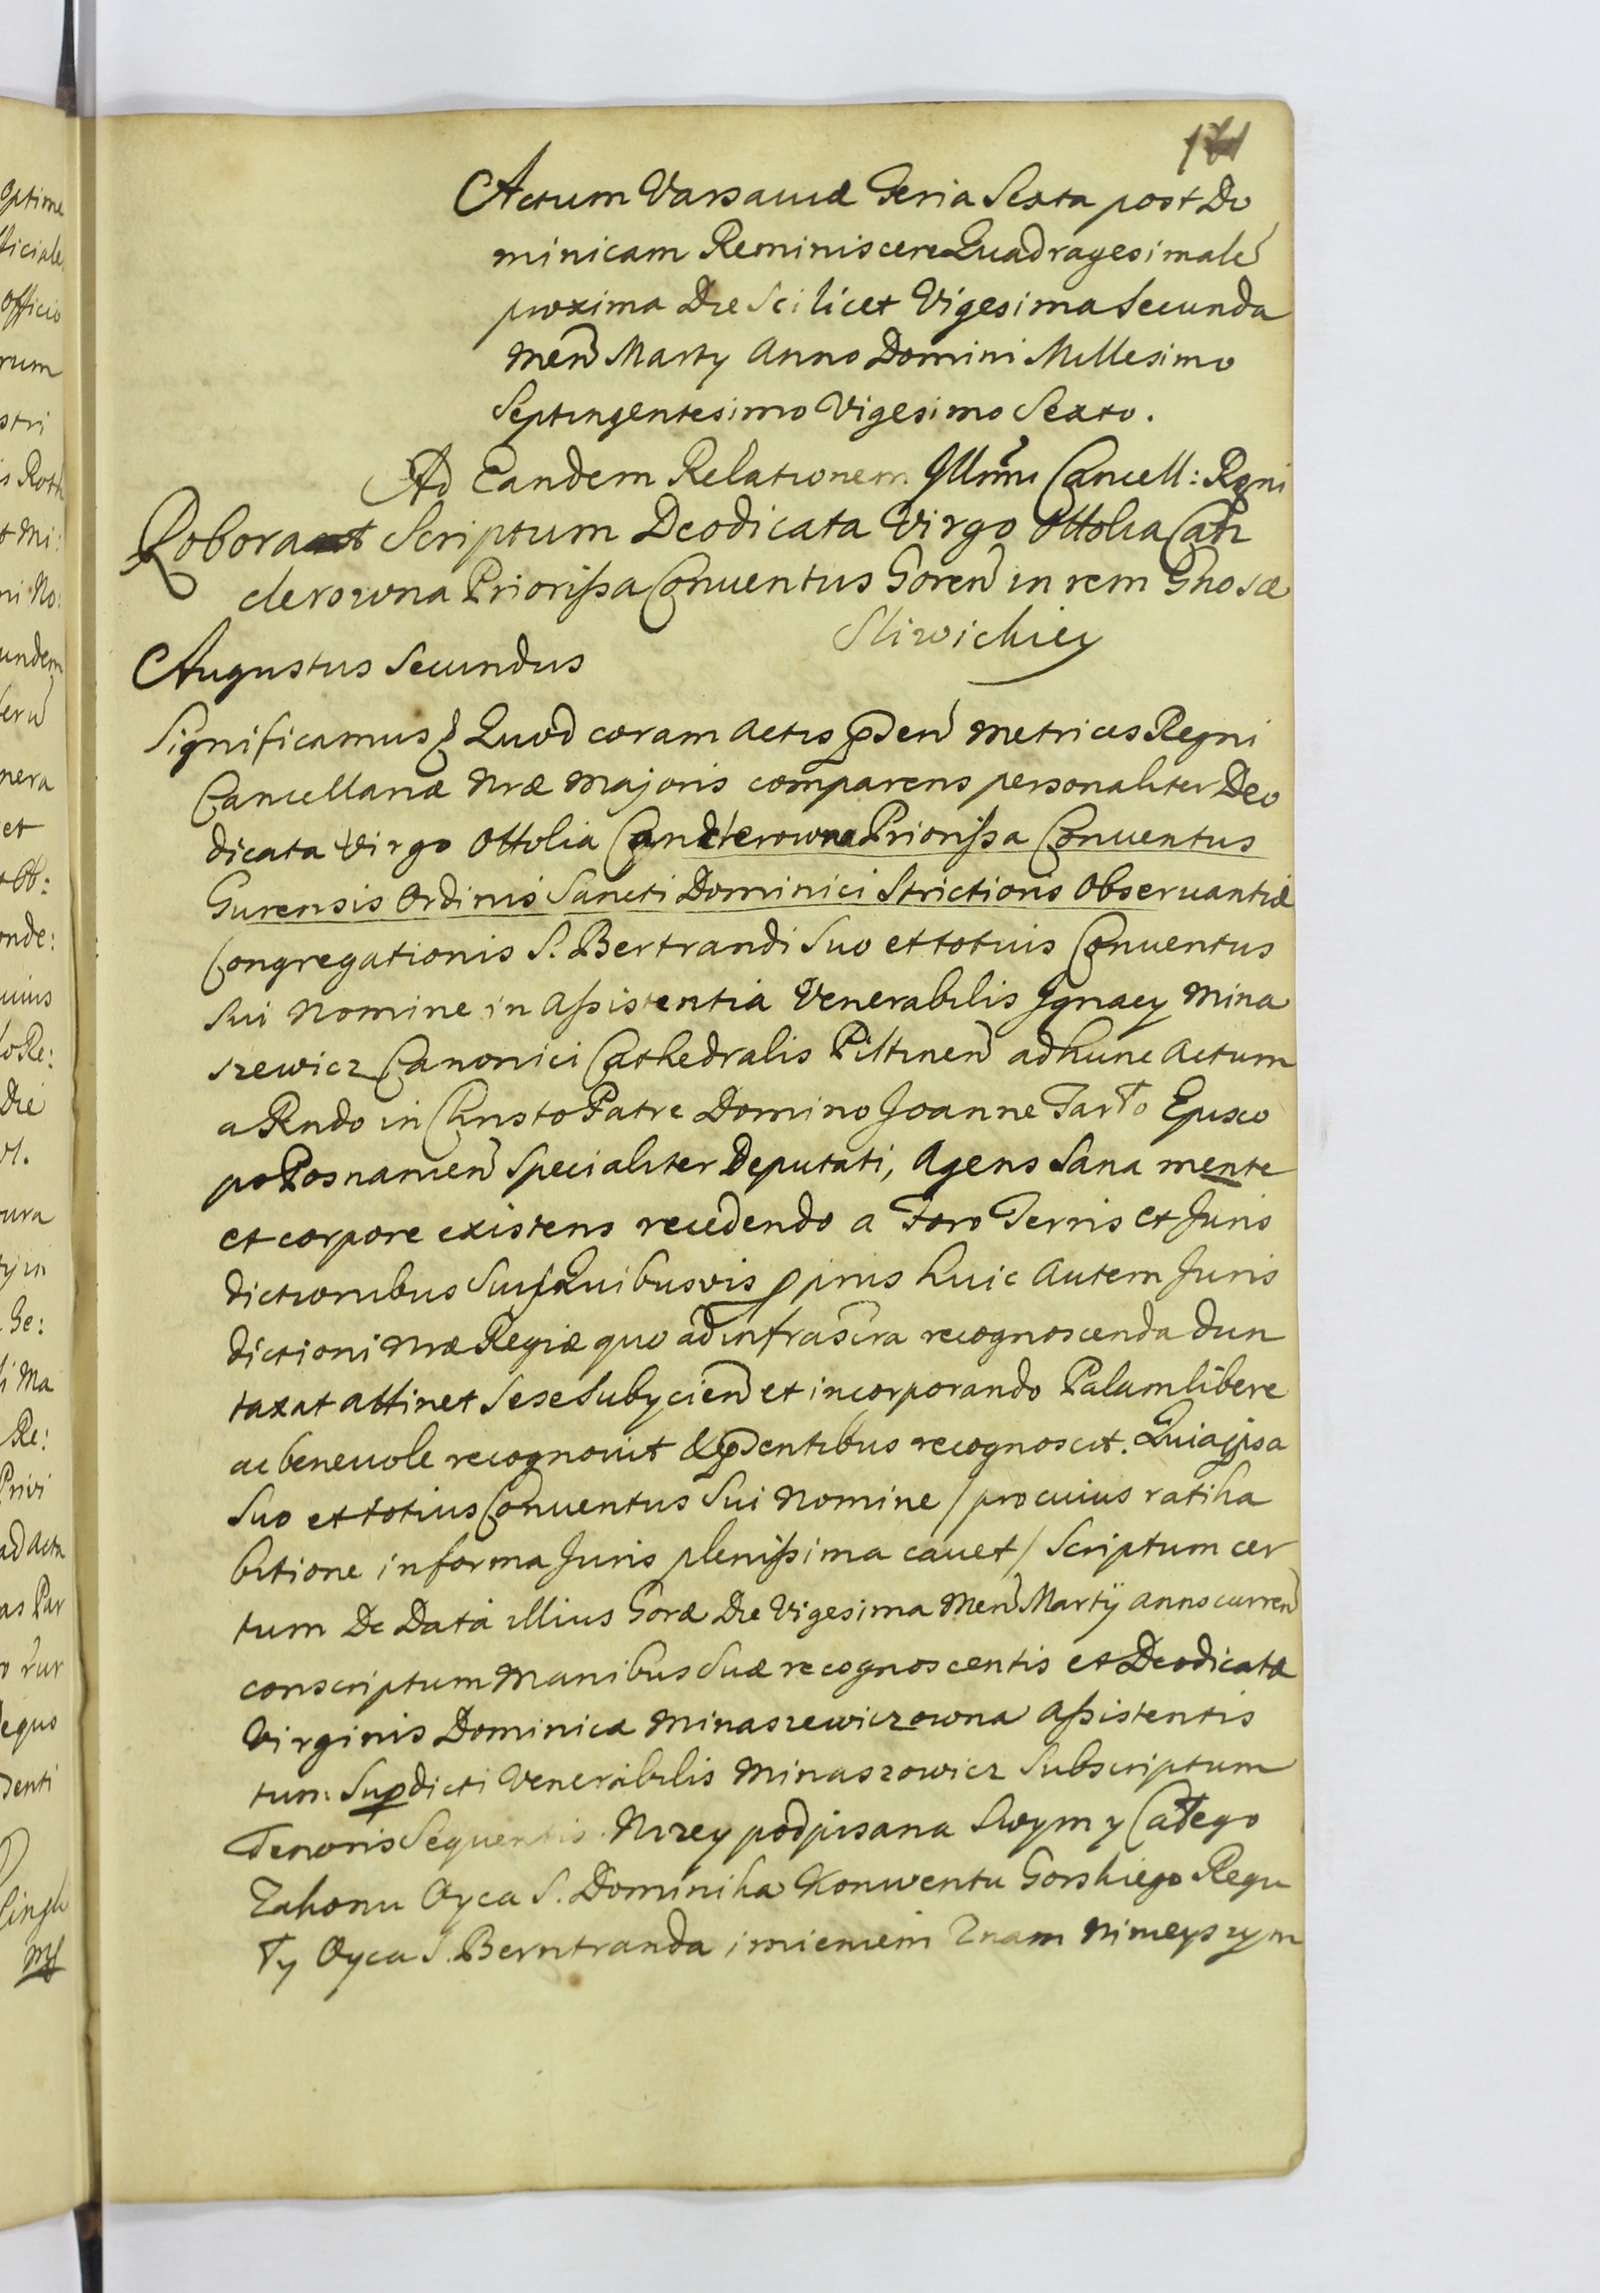 171
Actum Varsaviæ Feria Sexta post Do
minicam Reminiscere Quadragesimalē
proxima Die Scilicet Vigesima Secunda
Men̄ Martÿ Anno Domini Millesimo
Septingentesimo Vigesimo Sexto.
Ad Eandem Relationem Illm̄i Cancell: Rgni
Roborat Scriptum Deodicata Virgo Ottolia Can
clerowna Priorissa Conventus Goren̄ in rem Gnosæ
Sliwickiey
Augustus Secundus
Significamus Quod coram Actis pnsen̄ Metrices Regni
Cancellariæ Nræ Majoris comparens personaliter Deo
dicata Virgo Ottolia Canclerowna Priorissa Conventus
Gurensis Ordinis Sancti Dominici Strictioris Observantiæ
Congregationis S. Bertrandi Suo et totuis Conventus
Sui Nomine in Assistentia Venerabilis Ignacy Mina
szewicz Canonici Cathedralis Piltinen̄ ad hunc Actum
a Rndo in Christo Patre Domino Joanne Tarło Episco
po Posnanien̄ Specialiter Deputati, Agens Sana mente
et corpore existens recedendo a Foro Terris et Juris
dictionibus Suis Quibusvis ppriis huic Autem Juris
dictioni Nræ Regiæ quo ad infrascra recognoscenda dun
taxat attinet Sese Subycien̄ et incorporando Palam libere
ac benevole recognovit & pnsentibus recognoscit. Quia ipsa
Suo et totius Conventus Sui Nomine / pro cuius ratiha
bitione in forma Juris plenissima cavet / Scriptum cer
tum De Data illius Goræ Die Vigesima Men̄ Martÿ Anno curren̄
conscriptum Manibus Suæ recognoscentis et Deodicatæ
Virginis Dominica Minaszewiczowna Assistentis
tum Supdicti Venerabilis Minaszowicz Subscriptum
Tenoris Sequentis. Nizey podpisana Swym y Całego
Zakonu Oyca S. Dominika Konwentu Gorskiego Regu
ły Oyca S. Berntranda imieniem Znam Nineyszym